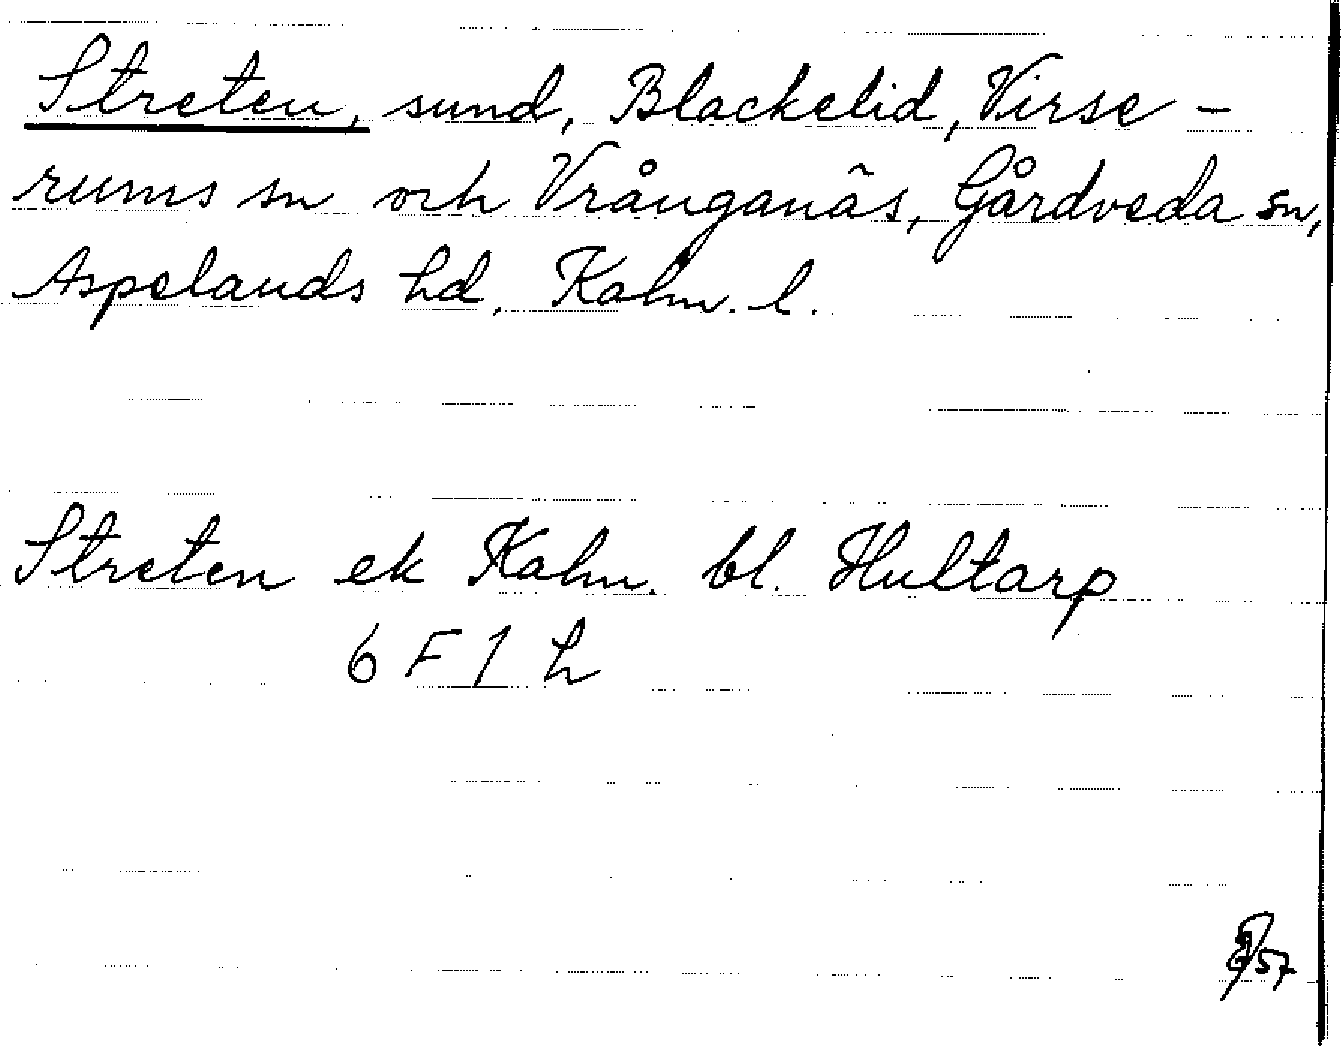 Streten, sund, Blackelid, Virse-
rums sn och Vrånganäs, Gårdveda sn,
Aspelands hd, Kalm. l.
Streten ek Kalm. bl. Hultarp
6 F 1 h
57